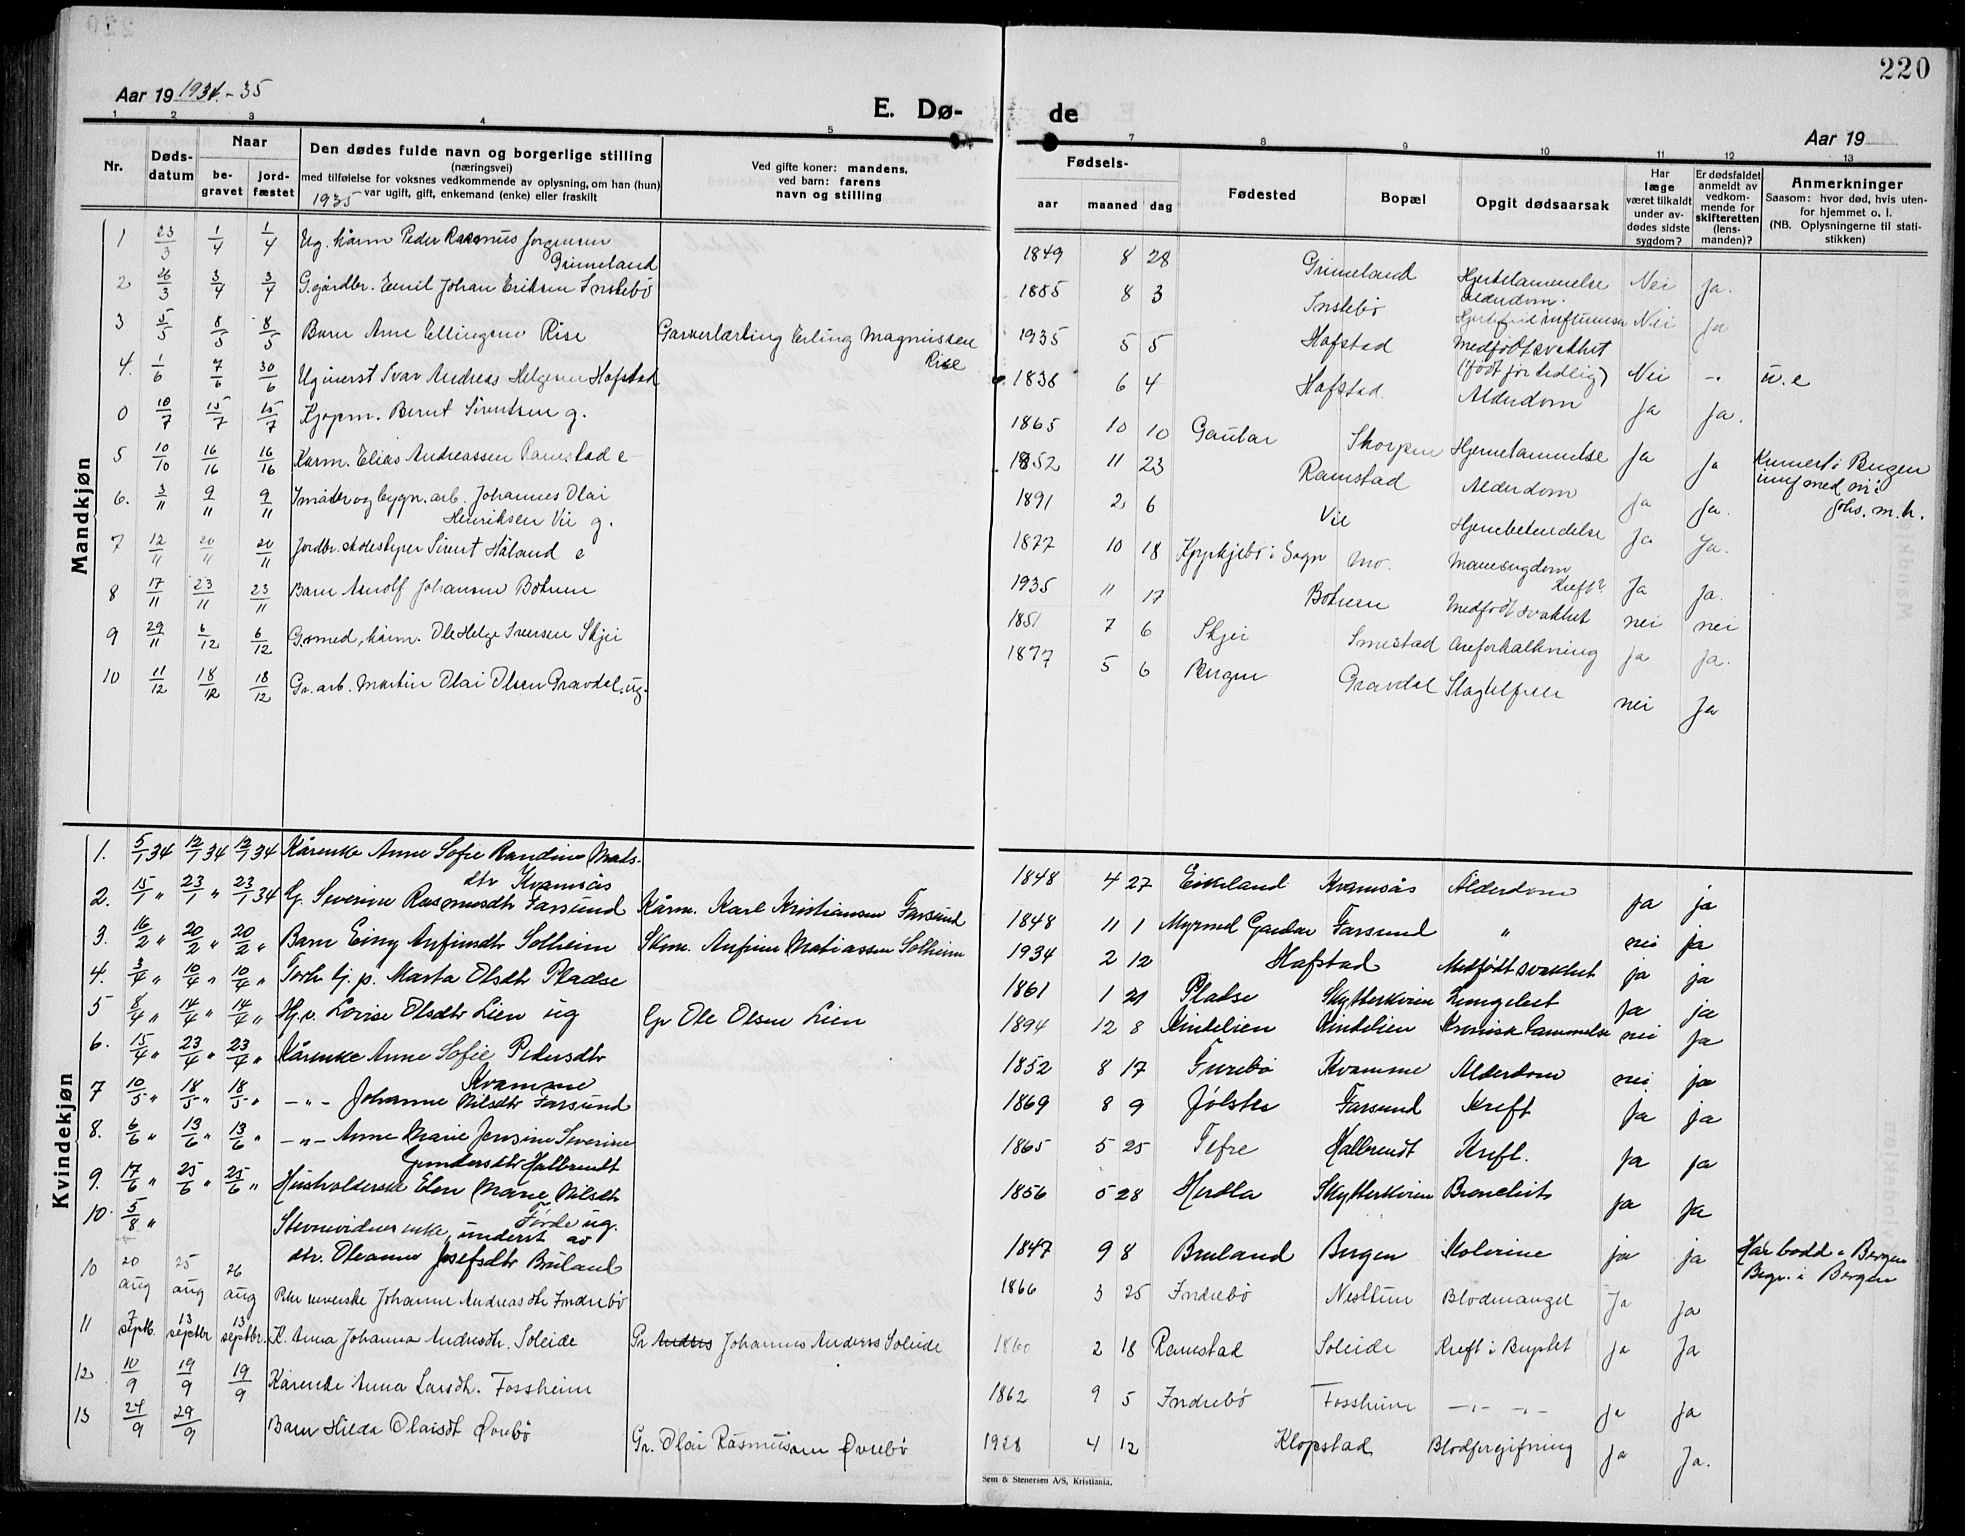 220
Aar 19 1934-35
E. Dø-
de
Aar 19
1 2 3 4 5 7 8 9 10 11 12 13
Nr.
Døds-
datum
Naar
be-
gravet
jord-
fæstet
Den dødes fulde navn og borgerlige stilling
(næringsvei)
med tilføielse for voksnes vedkommende av oplysning, om han (hun)
var ugift, gift, enkemand (enke) eller fraskilt
1935
Ved gifte koner: mandens,
ved barn: farens
navn og stilling
Fødsels-
aar maaned dag
Fødested
Bopæl
Opgit dødsaarsak
Har
læge
været tilkaldt
under av-
dødes sidste
sygdom?
Er dødsfaldet
anmeldt av
vedkom-
mende for
skifteretten
(lens-
manden)?
Anmerkninger
Saasom: hvor død, hvis uten-
for hjemmet o. l.
(NB. Oplysningerne til stati-
stikken)
Mandkjøn
1 23/3 1/4 1/4 Ug. kårm Peder Rasmus Jørgensen
Grimeland 1849 8 28 Grimeland Hjertelammelse
Alderdom. Nei Ja.
2 26/3 3/4 3/4 G. gårdbr. Emil Johan Eriksen Instebø 1885 8 3 Instebø Nei Ja
3 5/5 8/5 8/5 Barn Arne Ellingsen Rise Garverlærling Erling Magnussen
Rise 1935 5 5 Hafstad Medfødt svakhet
(født for tidlig) Nei -"- u. e
4. 1/6 7/6 30/6 Ug inerst Ivar Andreas Helgesen Hafstad 1838 6 4 Hafstad Alderdom Ja Ja.
0 10/7 15/7 15/7 Kjøpm. Bernt Sivertsen g. 1865 10 10 Gaular Skorpen Hjernelammelse Ja Ja
5 10/10 16/16 16/16 Karm. Elias Andreassen Ramstad e 1852 11 23 Ramstad Alderdom Ja Ja.
6. 3/11 9/11 9/11 Smådr og bygn. arb. Johannes Olai
Henriksen Vie g. 1891 2 6 Vie Hjernebetendelse Ja Ja.
7 12/11 20/11 20/11 Jordbr. skolestyrer Sivert Håland e 1877 10 18 Kyrkjebø i Sogn Mo. Mavesygdom
Kreft? Ja Ja.
8 17/11 23/11 23/11 Barn Arnolf Johansen Botnen 1935 11 17 Botnen Medfødt svakhet nei nei
9 29/11 6/12 6/12 G. smed, kårm. Ole Helge Iversen Skjei 1851 7 6 Skjei Smestad Areforkalkning ja Ja.
10 11/12 18/12 18/12 Gr. arb. Martin Olai Olsen Gravdal. ug. 1877 5 6 Bergen Gravdal Slagtilfelle nei Ja
Kvindekjøn
1. 5/1 34 12/1 34 12/1 34 Kårenke Anne Sofie Randine Mats-
dtr Kvamsås 1848 4 27 Eikeland Kvamsås Alderdom ja ja
2. 15/1 " 23/1 " 23/1 34 G. Severine Rasmusdtr Farsund Kårm. Karl Kristiansen Farsund 1848 11 1 Myrmel Gaular Farsund " nei ja
3. 16/2 " 20/2 " 20/2 " Barn Einy Anfinsdtr Solheim Skom. Anfinn Matiassen Solheim 1934 2 12 Hafstad Medfødt svakhet ja ja
4. 3/4 " 10/4 " 10/4 " Forh. tj. p. Marta Olsdtr Pladse 1861 1 21 Pladse Skytterkvien Lungebet ja ja
5 8/4 " 14/4 " 14/4 " Hj. v. Lovise Olsdtr Lien ug Gr Ole Olsen Lien 1894 12 8 Kindelien Kindelien Kronisk lammelse nei ja
6. 15/4 " 23/4 " 23/4 " Kårenke Anne Sofie Pedersdtr
Kvamme 1852 8 17 Furebø Kvamme Alderdom nei ja
7 10/5 " 18/5 " 18/5 " -"- Johanne Nilsdtr Farsund 1869 8 9 Jølster Farsund Kreft ja ja
8. 6/6 " 13/6 " 13/6 " -"- Anne Marie Jensine Severine
Gundersdtr Halbrendt 1865 5 25 Tefre Halbrendt Kreft. ja ja
9. 17/6 " 25/6 " 25/6 " Husholderske Elen Marie Nilsdtr
Førde ug. 1856 5 28 Herdla Skytterkvien Bronchit ja ja
10. 5/8 " Stevnevidner enke, underst av
dtr. Oleanna Josefsdtr Bruland 1847 9 8 Bruland Bergen Kolerine ja ja Har bodd i Bergen
Begr. i Bergen
10 20 aug 25 aug 26 aug Johanne Andreasdtr Indrebø 1866 3 25 Indrebø Nesttun Blodmangel Ja Ja
11 7 septb. 13 septbr 13 septbr. K. Anna Johanna Andersdtr. Soleide Gr Anders Johannes Anders Soleide 1860 2 18 Ramstad Soleide Kreft i Brystet ja Ja
12 10/9 19/9 19/9 Kårenke Anna Larsdtr. Fossheim 1862 9 5 Indrebø Fossheim -"- -"- ja Ja
13 24/9 29/9 Barn Hilda Olaisdtr Øvrebø Gr. Olai Rasmussen Øvrebø 1928 4 12 Klopstad Blodforgifning ja Ja.
Sem & Stenersen A/S, Kristiania.